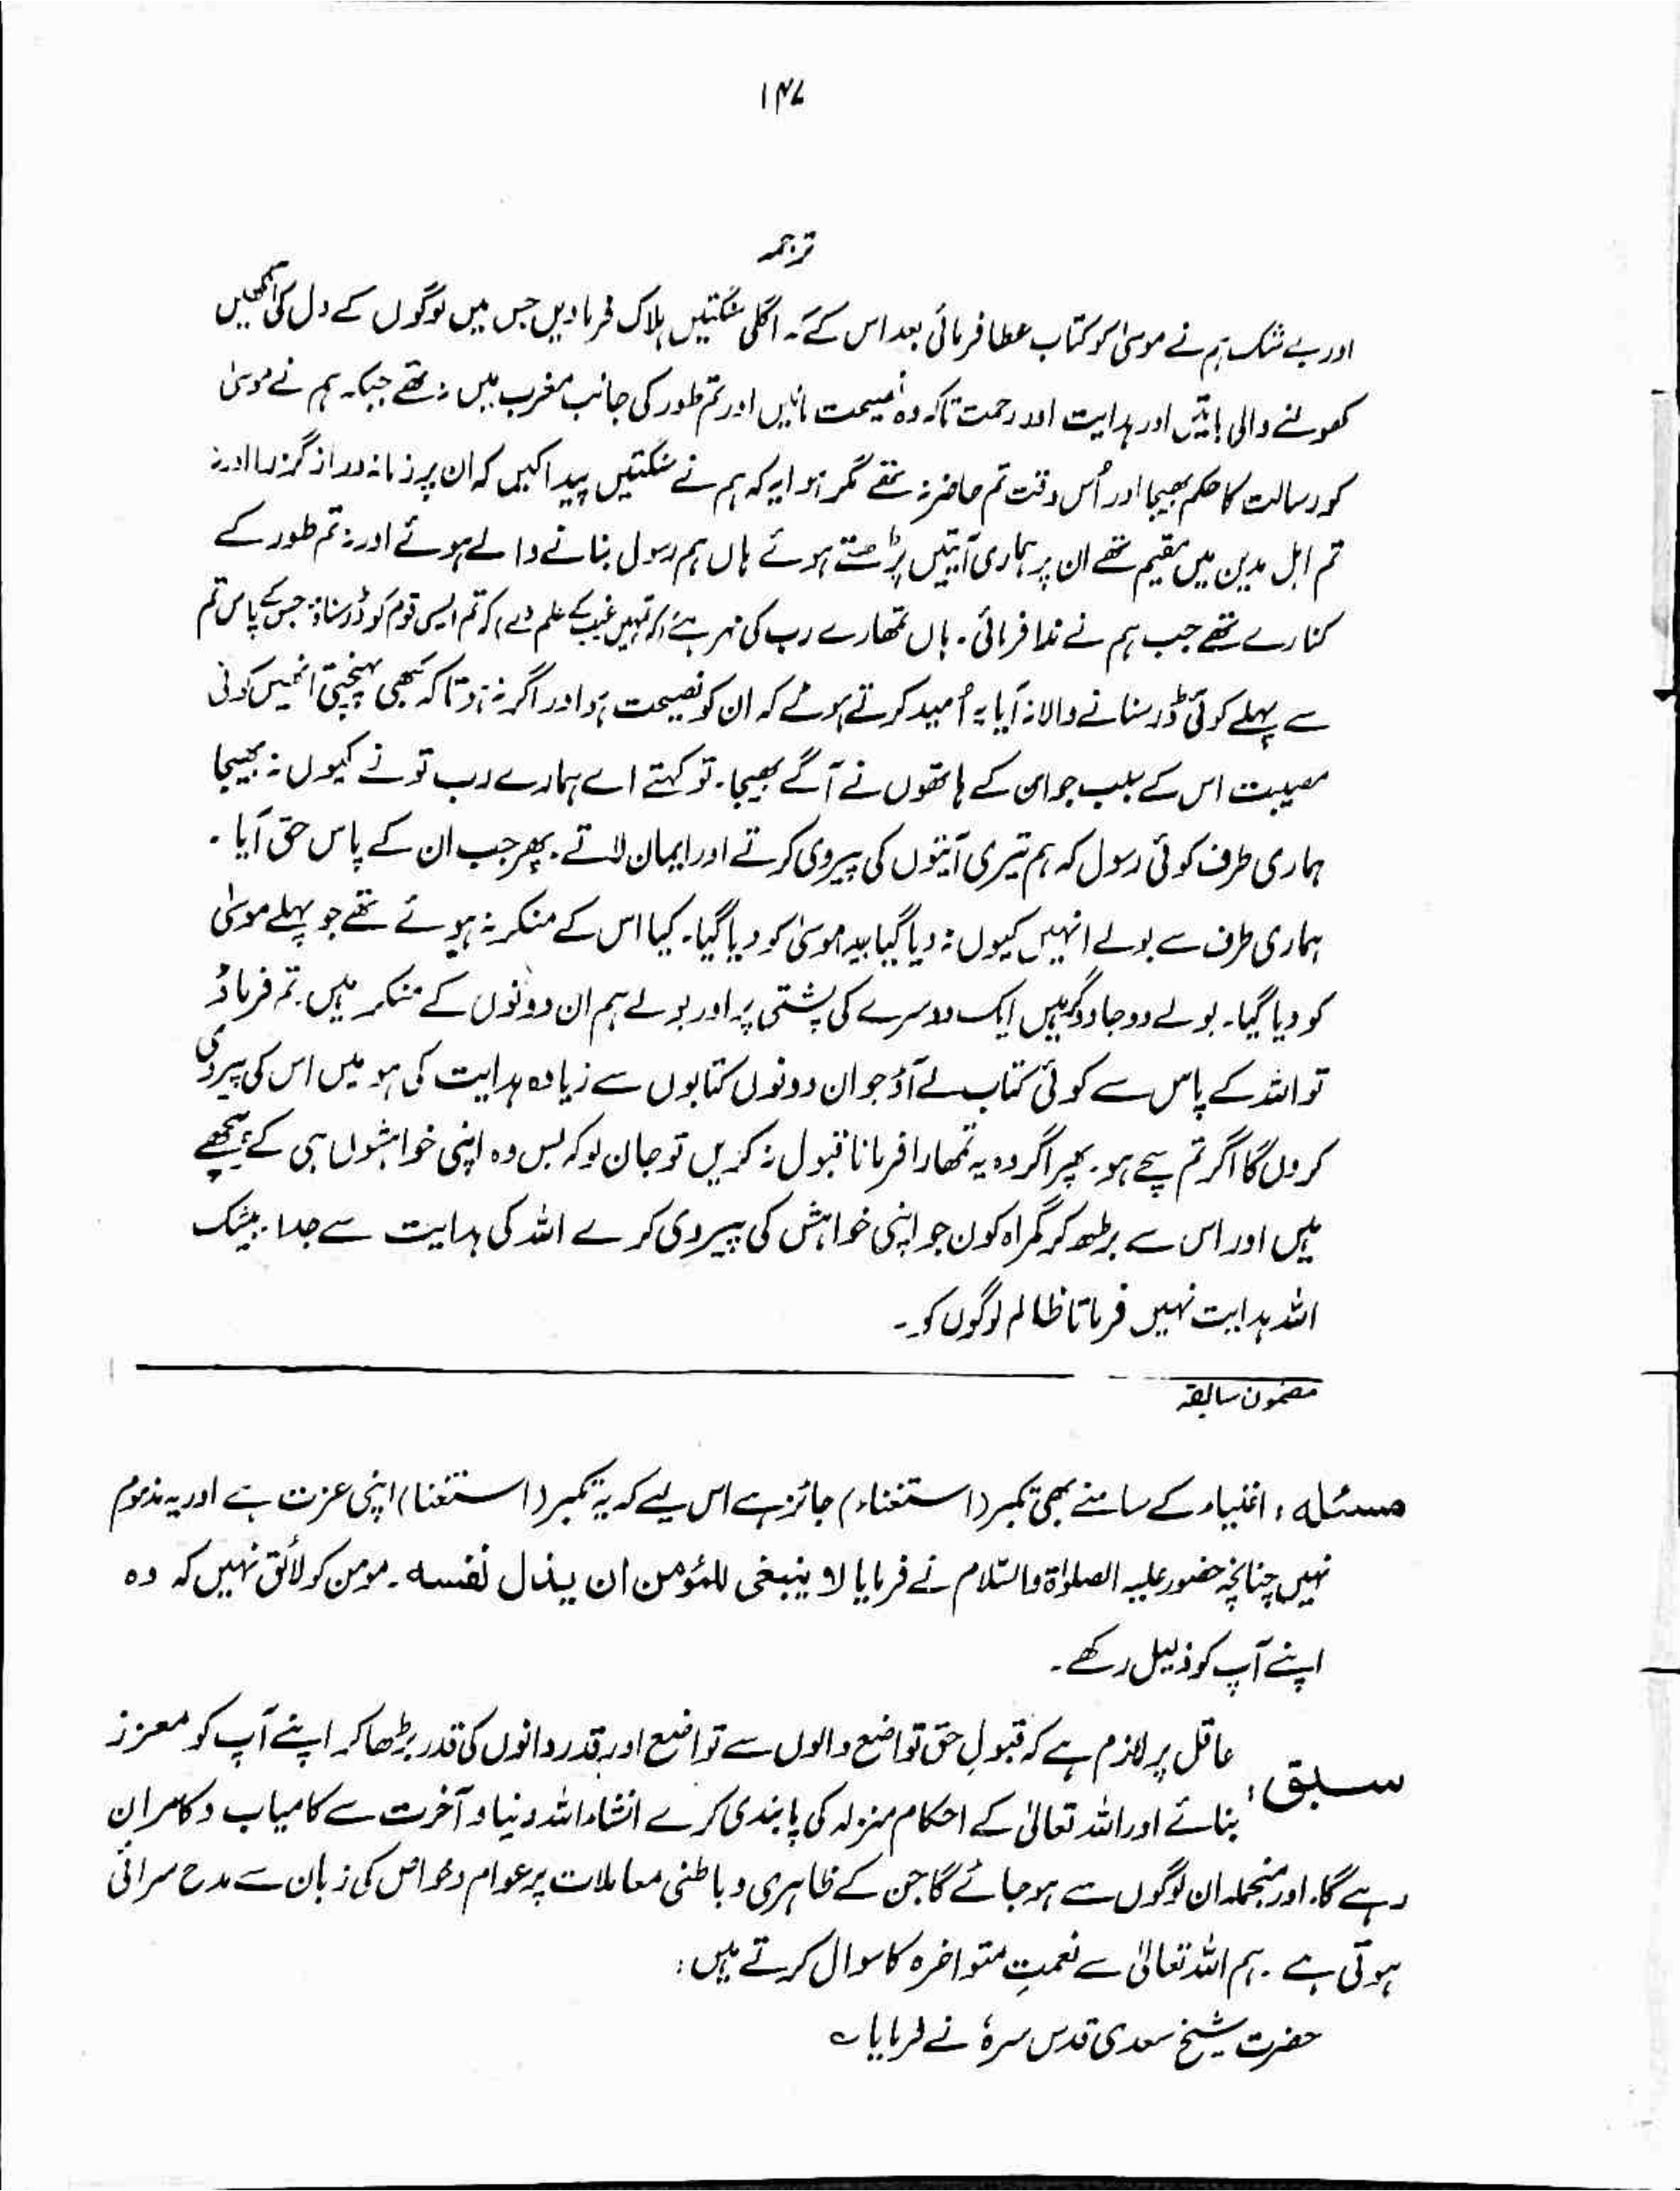 ۱۴۷
ترجمہ
اور بے شک ہم نے موسیٰ کو کتاب عطا فرمائی بعد اس کے کہ اگلی سنگتیں ہلاک فرما دیں جس میں لوگوں کے دل کی آنکھیں
کھولنے والی باتیں اور ہدایت اور رحمت تاکہ وہ نصیحت مانیں اور تم طور کی جانب مغرب میں نہ تھے جبکہ ہم نے موسیٰ
کو رسالت کا حکم بھیجا اور اُس وقت تم حاضر نہ تھے مگر ہوا یہ کہ ہم نے سنگتیں پیدا کیں کہ ان پر زمانہ دراز گزرا اور نہ
تم اہل مدین میں مقیم تھے ان پر ہماری آیتیں پڑھتے ہوئے ہاں ہم رسول بنانے والے ہوئے اور نہ تم طور کے
کنارے تھے جب ہم نے ندا فرمائی۔ ہاں تمھارے رب کی مہر ہے (کہ تمہیں غیب کے علم دے) کہ تم ایسی قوم کو ڈر سناؤ جس کے پاس تم
سے پہلے کوئی ڈر سنانے والا نہ آیا یہ اُمید کرتے ہوئے کہ ان کو نصیحت ہو اور اگر نہ ہوتا کہ کبھی پہنچتی انھیں کوئی
مصیبت اس کے سبب جو ان کے ہاتھوں نے آگے بھیجا۔ تو کہتے اے ہمارے رب تو نے کیوں نہ بھیجا
ہماری طرف کوئی رسول کہ ہم تیری آیتوں کی پیروی کرتے اور ایمان لاتے۔ پھر جب ان کے پاس حق آیا۔
ہماری طرف سے بولے انہیں کیوں نہ دیا گیا جو موسیٰ کو دیا گیا۔ کیا اس کے منکر نہ ہوئے تھے جو پہلے موسیٰ
کو دیا گیا۔ بولے دو جادوگر ہیں ایک دوسرے کی پشتی پر اور بولے ہم ان دونوں کے منکر ہیں۔ تم فرماؤ
تو اللہ کے پاس سے کوئی کتاب لے آؤ جو ان دونوں کتابوں سے زیادہ ہدایت کی ہو میں اس کی پیروی
کروں گا اگر تم سچے ہو۔ پھر اگر وہ یہ تمھارا فرمانا قبول نہ کریں تو جان لو کہ بس وہ اپنی خواہشوں ہی کے پیچھے
ہیں اور اس سے بڑھ کر گمراہ کون جو اپنی خواہش کی پیروی کرے اللہ کی ہدایت سے جدا۔ بیشک
اللہ ہدایت نہیں فرماتا ظالم لوگوں کو۔
مضمون سابقہ
مسئلہ: اغنیاء کے سامنے بھی تکبر (استغناء) جائز ہے اس لیے کہ یہ تکبر (استغنا) اپنی عزت ہے اور یہ مذموم
نہیں چنانچہ حضور علیہ الصلوٰۃ والسّلام نے فرمایا لا ینبغی للمؤمن ان یذل نفسہ۔ مومن کو لائق نہیں کہ وہ
اپنے آپ کو ذلیل رکھے۔
سبق: عاقل پر لازم ہے کہ قبولِ حق تواضع والوں سے تواضع اور قدر دانوں کی قدر بڑھا کر اپنے آپ کو معزز
بنائے اور اللہ تعالیٰ کے احکام منزلہ کی پابندی کرے انشاء اللہ دنیا و آخرت سے کامیاب و کامران
رہے گا۔ اور منجملہ ان لوگوں سے ہو جائے گا جن کے ظاہری و باطنی معاملات پر عوام و خواص کی زبان سے مدح سرائی
ہوتی ہے۔ ہم اللہ تعالیٰ سے نعمتِ متواخرہ کا سوال کرتے ہیں:
حضرت شیخ سعدی قدس سرہٗ نے فرمایا ؎